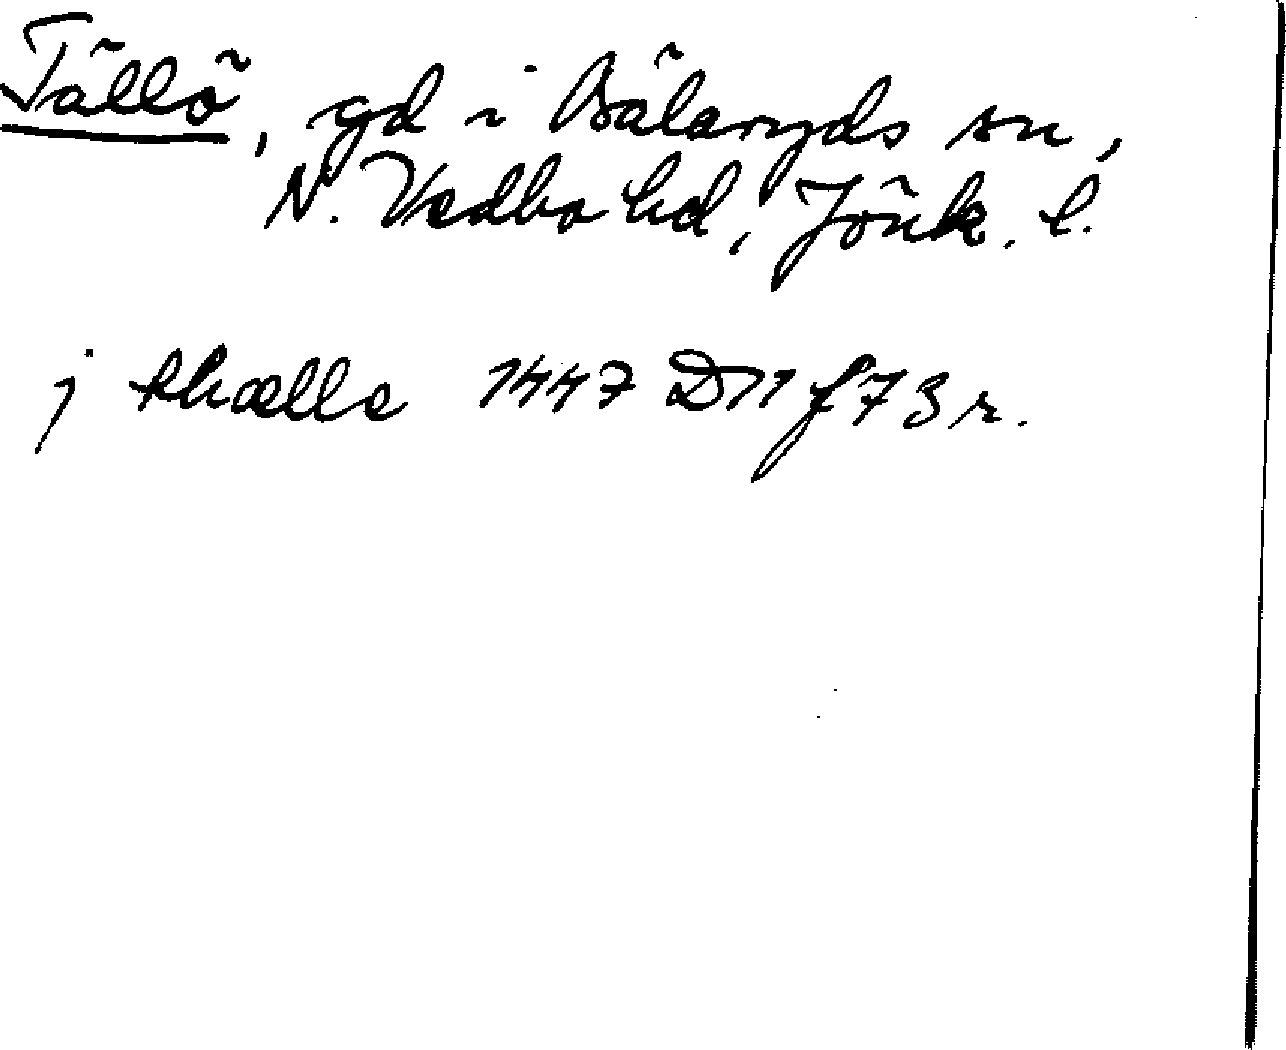 Tällö, gd i Bälaryds sn,
N. Vedbo hd, Jönk. l.
j thælle 1447 D11 f 73 r.